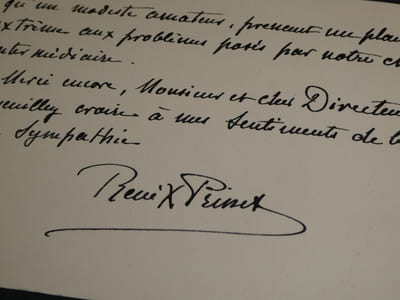 qu'un modeste amateur, prenant un plai
extrême aux problèmes posés par notre ch
intermédiaire.
Merci encore, Monsieur et cher Directeu
veuillez croire à mes sentiments de
sympathie
René X Prinet